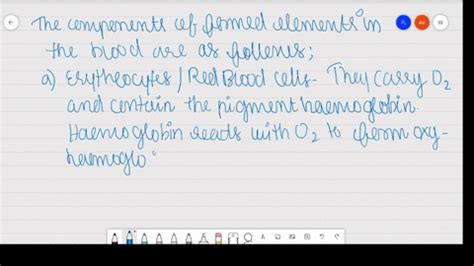 The components of formed elements in
the blood are as follows;
a) Erytheocytes / Red Blood cells - They carry O2
and contain the pigment haemoglobin.
Haemoglobin reacts with O2 to form oxy-
haemoglo